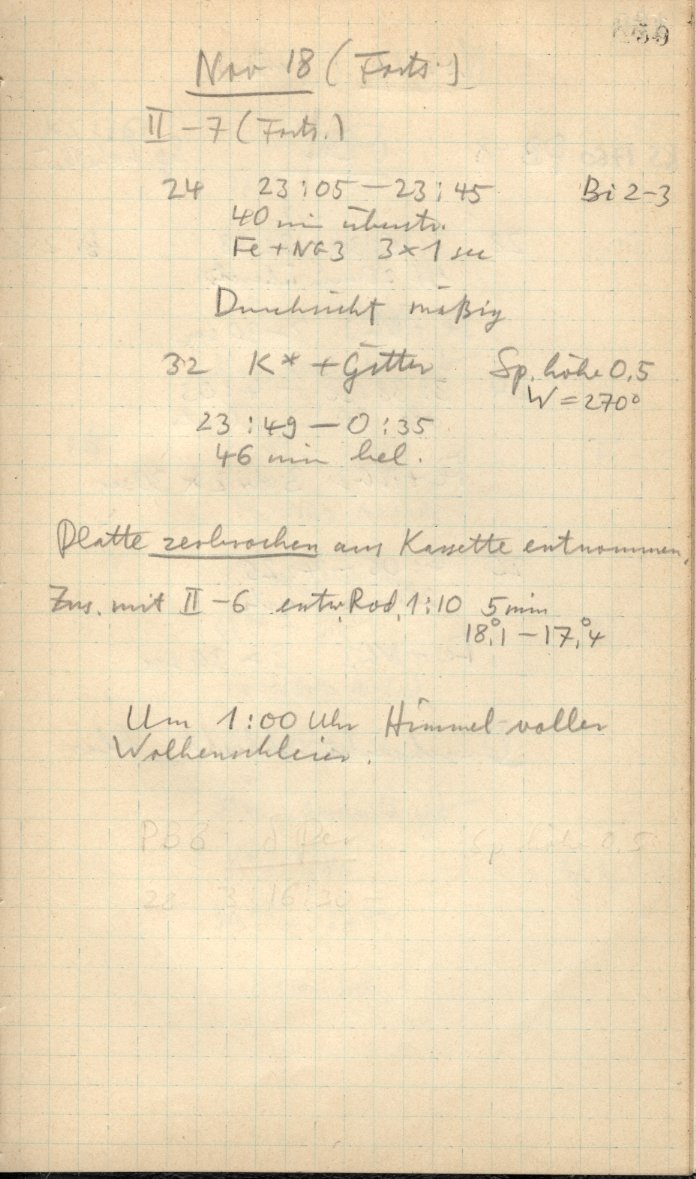 59
Nov 18 (Forts.)
II - 7 (Forts.)
24 23:05 - 23:45 Bi 2-3
40 min überstr.
Fe + Ne 3 3 × 1 sec
Durchsicht mäßig
32 K* + Gitter Sp. höhe 0,5
W = 270°
23:49 - 0:35
46 min bel.
Platte zerbrochen aus Kassette entnommen.
Zus. mit II - 6 entw. Rod. 1:10 5 min
18°,1 - 17°,4
Um 1:00 Uhr Himmel voller
Wolkenschleier.
Sp. höhe 0,5
28 3 16:30 -